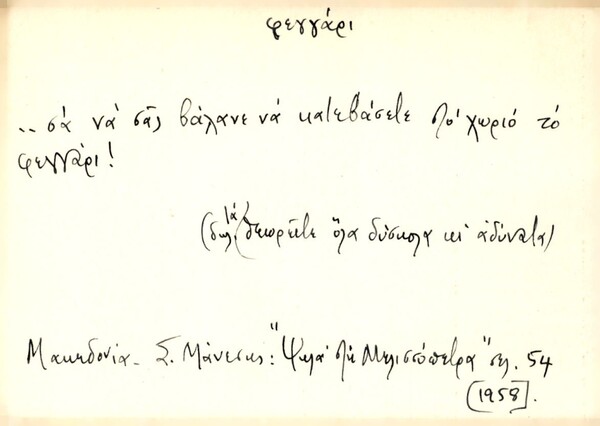 φεγγάρι
.. σά νά σᾶς βάλανε νά κατεβάσετε στό χωριό τό
φεγγάρι!
(δηλ. θεωρεῖτε ὅλα δύσκολα κι' ἀδύνατα)
Μακεδονία - Σ. Μάνεσης: "Ψηλά στή Μελισσόπετρα" σελ. 54
(1958].